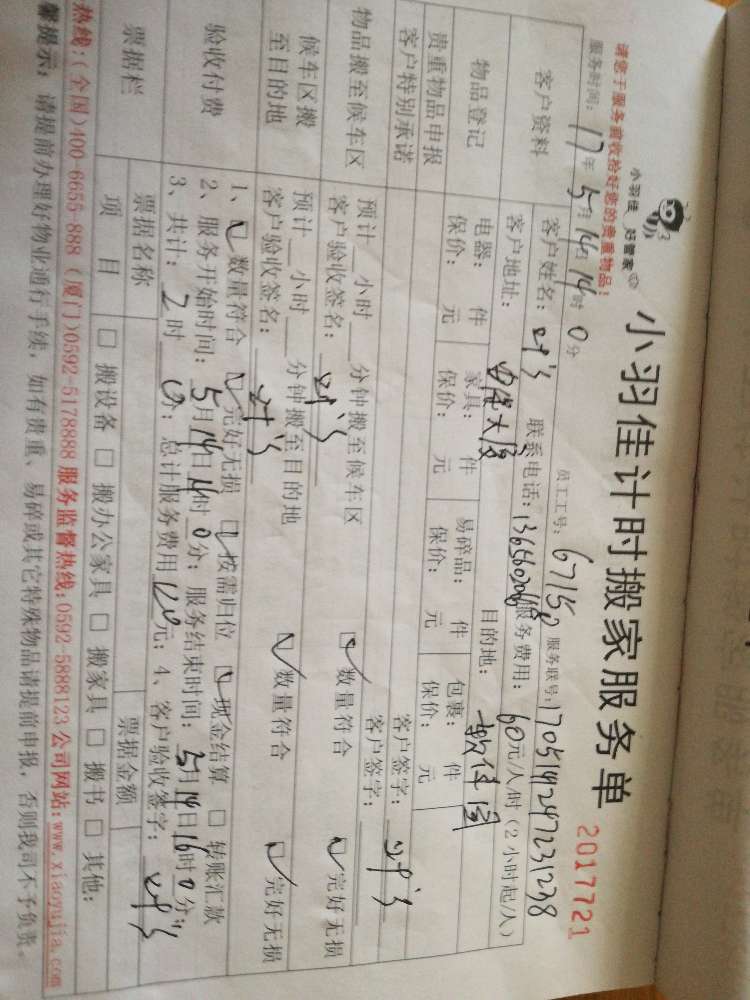 请您于服务前收拾好您的贵重物品!
小羽佳 好管家
小羽佳计时搬家服务单
2017721
服务时间: 17年5月14日14时0分
员工工号: 67150
服务联号:
客户资料
客户姓名:
联系电话:
服务费用: 60元/人/时(2小时起/人)
客户地址:
目的地:
物品登记
电器: 件
家具: 件
易碎品: 件
包裹: 件
保价: 元
保价: 元
保价: 元
保价: 元
贵重物品申报
客户签字:
客户特别承诺
客户签字:
物品搬至候车区
预计 小时 分钟搬至候车区
数量符合
完好无损
客户验收签名:
候车区搬至目的地
预计 小时 分钟搬至目的地
数量符合
完好无损
客户验收签名:
验收付费
1、 数量符合 完好无损 按需归位 现金结算 转账汇款
2、服务开始时间: 5月14日14时0分; 服务结束时间: 5月14日16时0分;
3、共计: 2时0分; 总计服务费用120元; 4、客户验收签字:
票据栏
票据名称
票据金额
项目
搬设备 搬办公家具 搬家具 搬书 其他:
热线:(全国)400-6655-888 (厦门)0592-5178888 服务监督热线:0592-5888123 公司网站:www.xiaoyujia.com
馨提示: 请提前办理好物业通行手续, 如有贵重、易碎或其它特殊物品请提前申报, 否则我司不予负责。